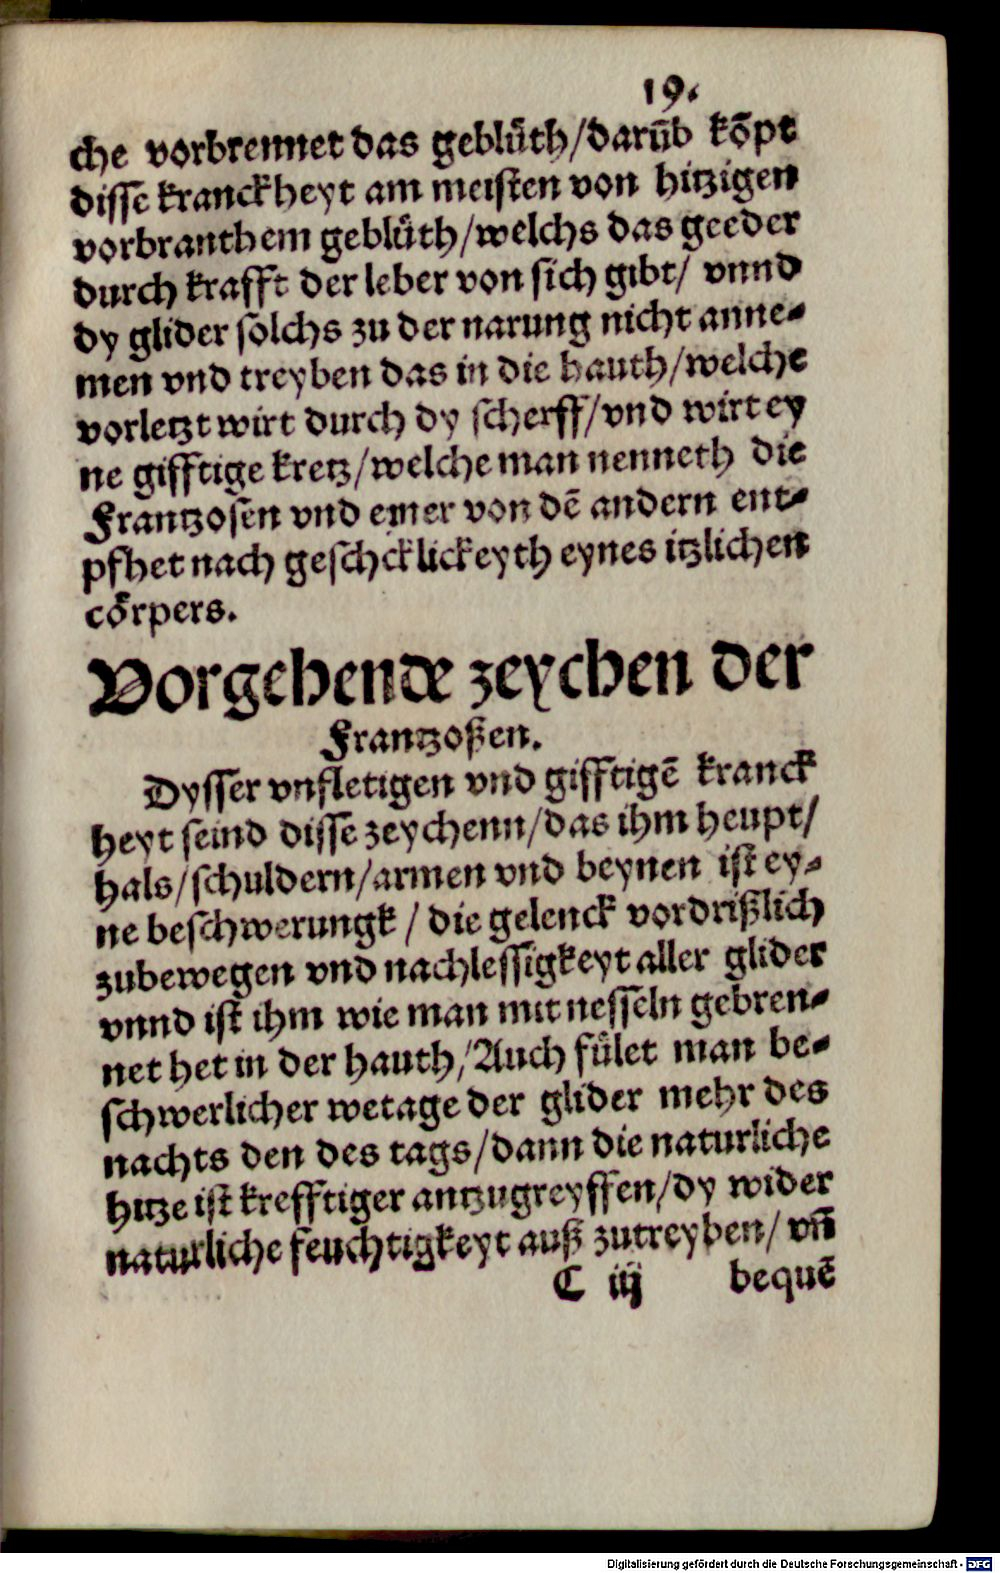 19.
che vorbrennet das geblüth/darūb kōpt
disse kranckheyt am meisten von hitzigen
vorbranthem geblüth/welchs das geeder
durch krafft der leber von sich gibt/ vnnd
dy glider solchs zu der narung nicht anne-
men vnd treyben das in die hauth/welche
vorletzt wirt durch dy scherff/vnd wirt ey
ne gifftige kretz/welche man nenneth die
Frantzosen vnd einer von dē andern ent-
pfhet nach geschcklickeyth eynes itzlichen
cörpers.
Vorgehende zeychen der
Frantzoßen.
Dysser vnfletigen vnd gifftigē kranck
heyt seind disse zeychenn/das ihm heupt/
hals/schuldern/armen vnd beynen ist ey-
ne beschwerungk/ die gelenck vordrißlich
zubewegen vnd nachlessigkeyt aller glider
vnnd ist ihm wie man mit nesseln gebren-
net het in der hauth/Auch fület man be-
schwerlicher wetage der glider mehr des
nachts den des tags/dann die naturliche
hitze ist krefftiger antzugreyffen/dy wider
naturliche feuchtigkeyt auß zutreyben/ vn̄
C iij bequē
Digitalisierung gefördert durch die Deutsche Forschungsgemeinschaft - DFG